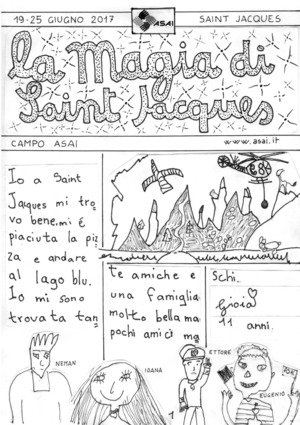 19-25 GIUGNO 2017
ASAI
SAINT JACQUES
La Magia di
Saint Jacques
CAMPO ASAI
www.asai.it
Io a Saint
Jaques mi tro
vo bene.mi é
piaciuta la piz
za e andare
al lago blu.
Io mi sono
trovata tan
te amiche e
una famiglia
molto bella ma
pochi amici ma
schi.
Gioia
11 anni.
NEMAN
IOANA
ETTORE
EUGENIO
1